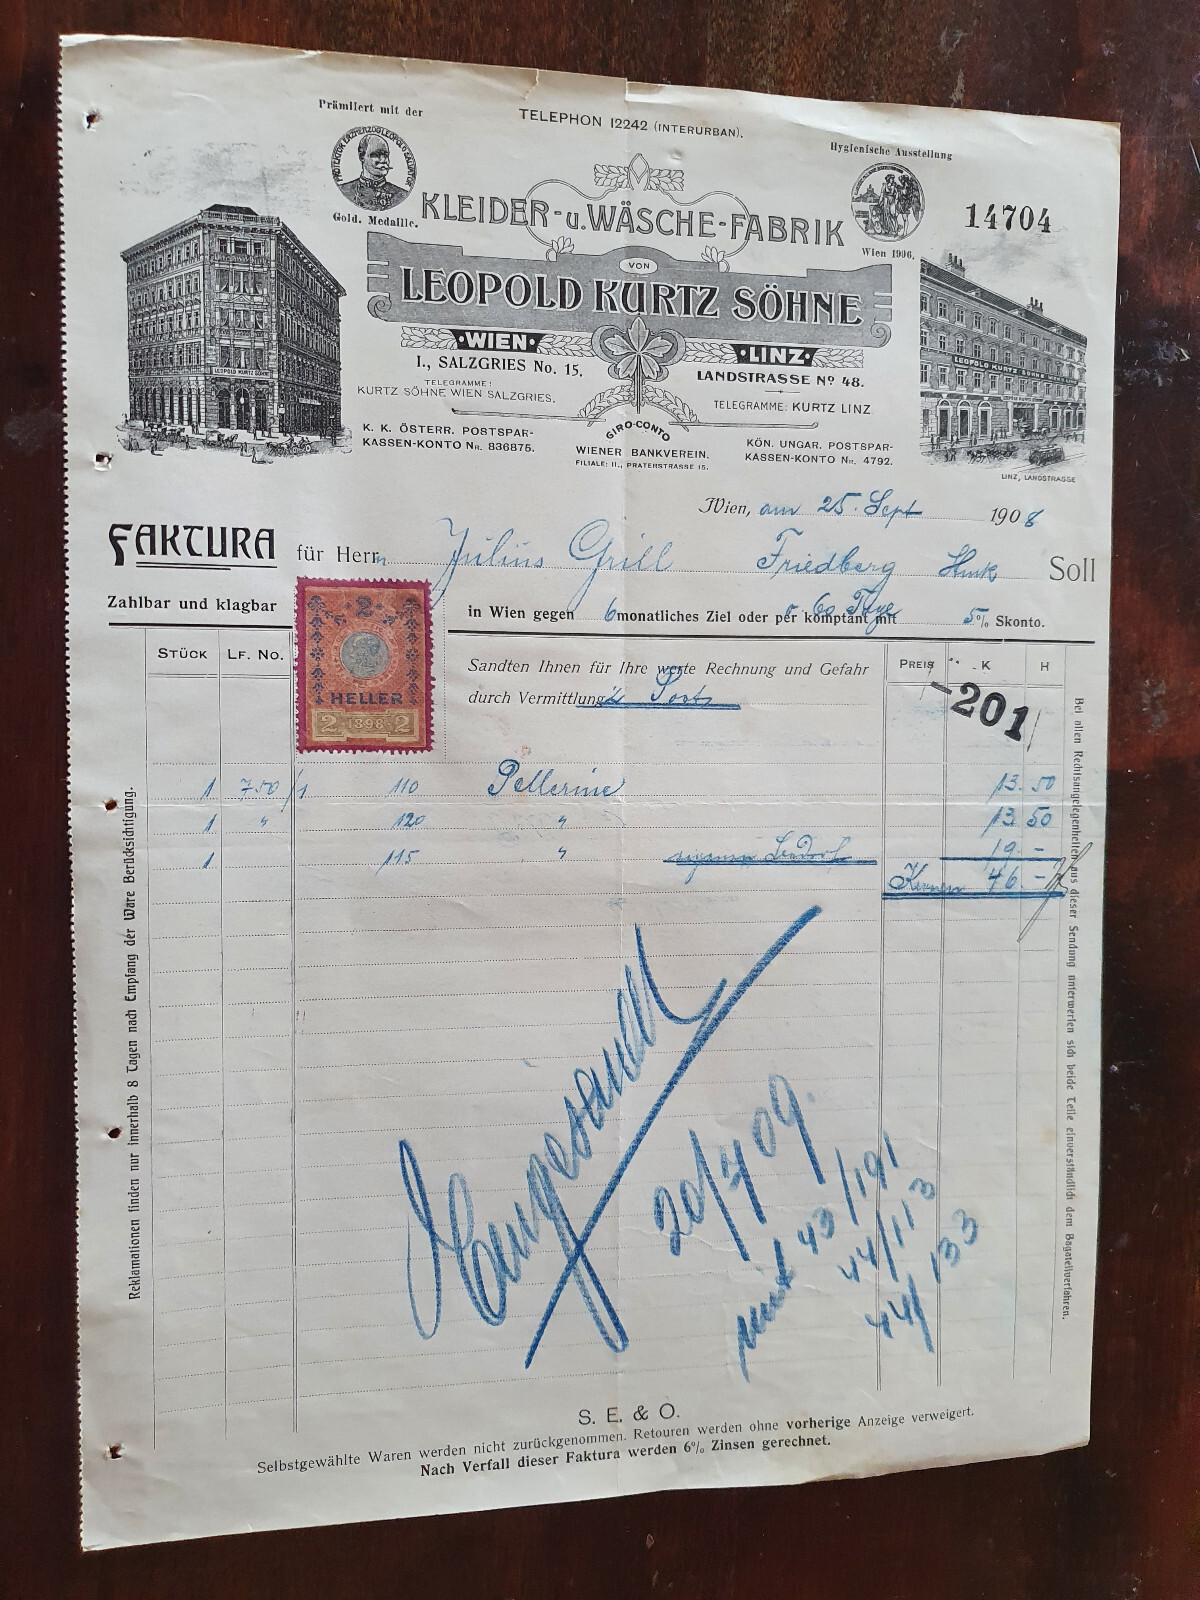 Prämiiert mit der
TELEPHON 12242 (INTERURBAN).
Hygienische Ausstellung
PROTEKTOR ERZHERZOG LEOPOLD SALVATOR
Gold. Medaille.
KLEIDER- u. WÄSCHE-FABRIK
14704
Wien 1906.
VON
LEOPOLD KURTZ SÖHNE
·WIEN·
·LINZ·
I., SALZGRIES No. 15.
LANDSTRASSE No 48.
TELEGRAMME:
KURTZ SÖHNE WIEN SALZGRIES.
TELEGRAMME: KURTZ LINZ
LEOPOLD KURTZ SÖHNE
LEOPOLD KURTZ SÖHNE
K. K. ÖSTERR. POSTSPAR-
KASSEN-KONTO Nr. 836875.
GIRO-CONTO
WIENER BANKVEREIN.
FILIALE: II., PRATERSTRASSE 15.
KÖN. UNGAR. POSTSPAR-
KASSEN-KONTO Nr. 4792.
LINZ, LANDSTRASSE
Wien, am 25. Sept 1908
FAKTURA für Herrn Julius Grill Friedberg Soll
Zahlbar und klagbar in Wien gegen 6 monatliches Ziel oder per komptant mit 5% Skonto.
2
HELLER
2 1898 2
STÜCK LF. No. PREIS K H
Sandten Ihnen für Ihre werte Rechnung und Gefahr
durch Vermittlung
-201
1 750/1 110 Pellerine 13. 50
1 " 120 " 13 50
1 115 " 19 -
46. -
Reklamationen finden nur innerhalb 8 Tagen nach Empfang der Ware Berücksichtigung.
Bei allen Rechtsangelegenheiten aus dieser Sendung unterwerfen sich beide Teile einverständlich dem Bagatellverfahren.
20/7 09.
mit 43/191
44/113
44/133
S. E. & O.
Selbstgewählte Waren werden nicht zurückgenommen. Retouren werden ohne vorherige Anzeige verweigert.
Nach Verfall dieser Faktura werden 6% Zinsen gerechnet.